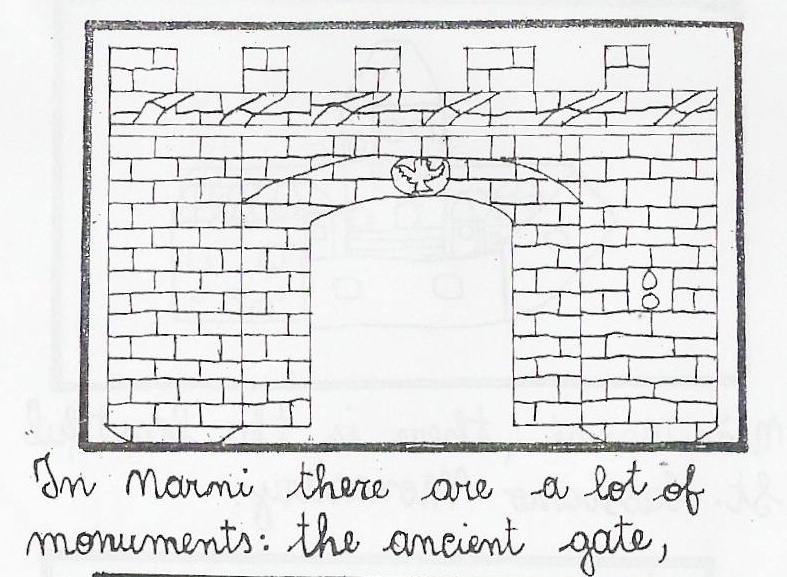 In Narni there are a lot of
monuments: the ancient gate,